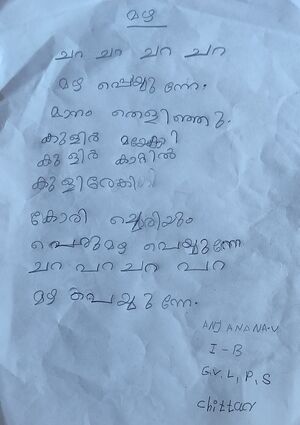 മഴ
ചറ ചറ ചറ ചറ
മഴ പെയ്യുന്നേ.
മാനം തെളിഞ്ഞു.
കുളിർ
കുളിർ കാറ്റിൽ
കുളിരേകി
കോരി ച്ചൊരിയും
പെരുമഴ പെയ്യുന്നേ
ചറ പറ ചറ പറ
മഴ പെയ്യുന്നേ.
ANJANANA.V
I - B
G.V.L.P.S
Chittar